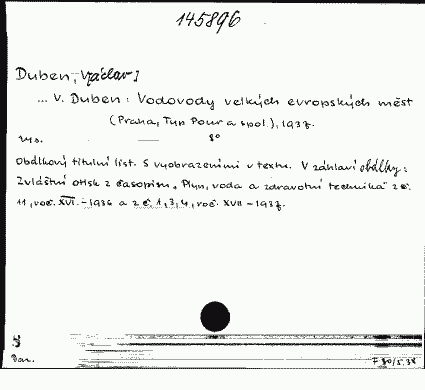 145896
Duben, V[áclav]
... V. Duben: Vodovody velkých evropských měst
(Praha, Typ Pour a spol.), 1937.
8°
Obálkový titulní list. S vyobrazeními v textu. V záhlaví obálky:
Zvláštní otisk z časopisu „Plyn, voda a zdravotní technika" z č.
11, roč. XVI. - 1936 a z č. 1, 3, 4, roč. XVII - 1937.
Dar.